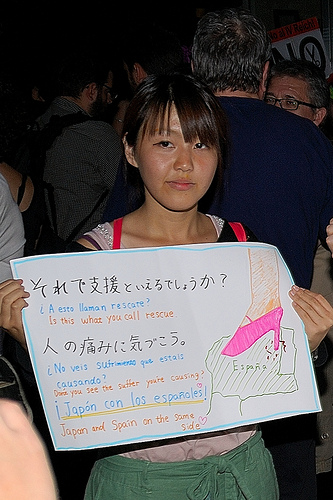 NO
それで支援といえるでしょうか?
¿A esto llaman rescate?
Is this what you call rescue
人の痛みに気づこう。
¿No veis sufrimiento que estais
causando?
Dont you see the suffer you're causing?
España
¡Japón con los españoles!
Japan and Spain on the same
side